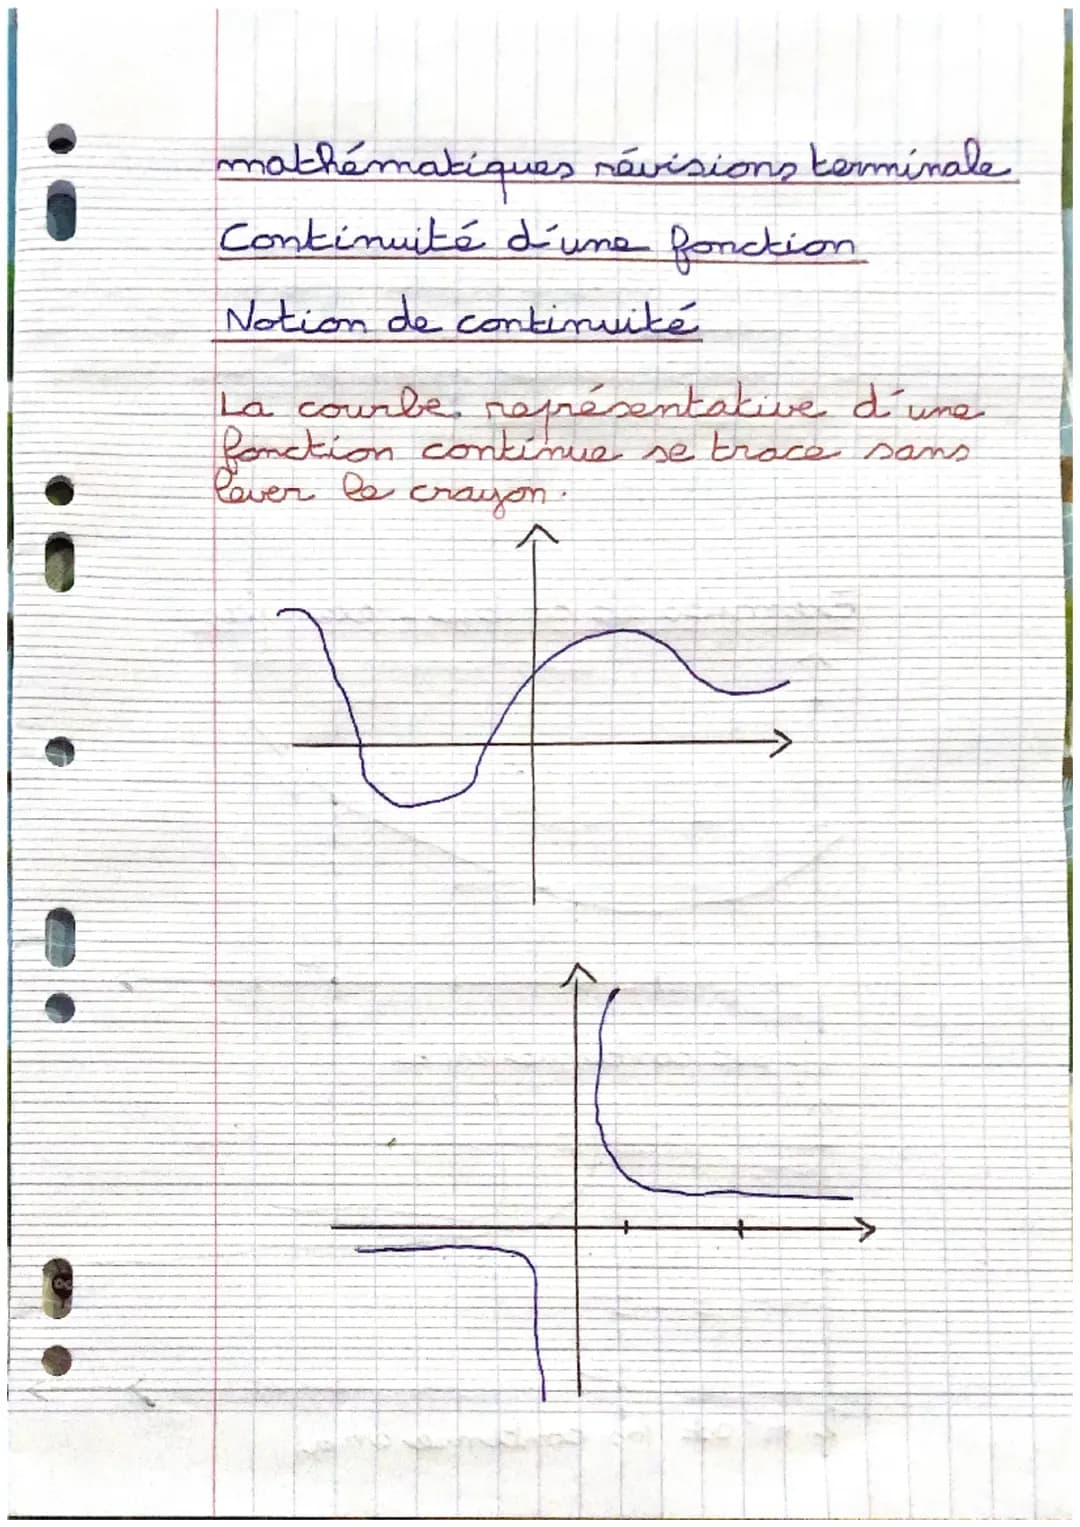 mathématiques révisions terminale
Continuité d'une fonction
Notion de continuité
La courbe représentative d'une
fonction continue se trace sans
lever le crayon.